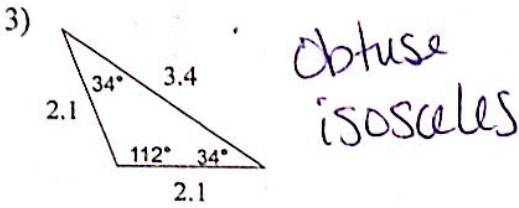 3)
34°
3.4
2.1
112° 34°
2.1
obtuse
isosceles